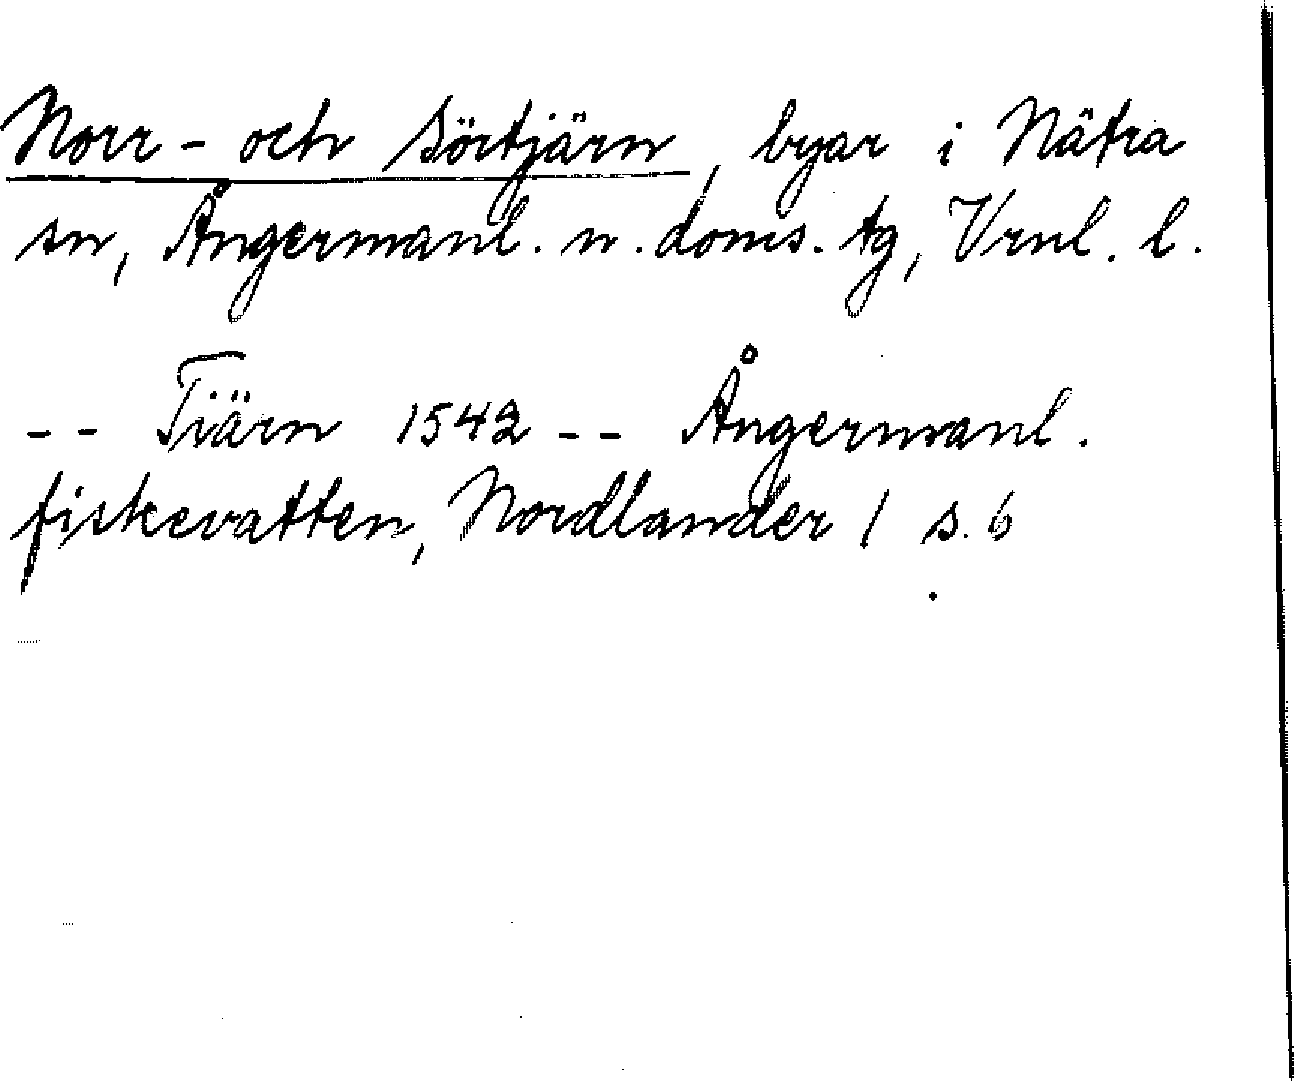 Norr- och Sörtjärn, byar i Nätra
sn, Ångermanl. n. doms. tg, Vrnl. l.
-- Tiärn 1542 -- Ångermanl.
fiskevatten, Nordlander 1 s. 6